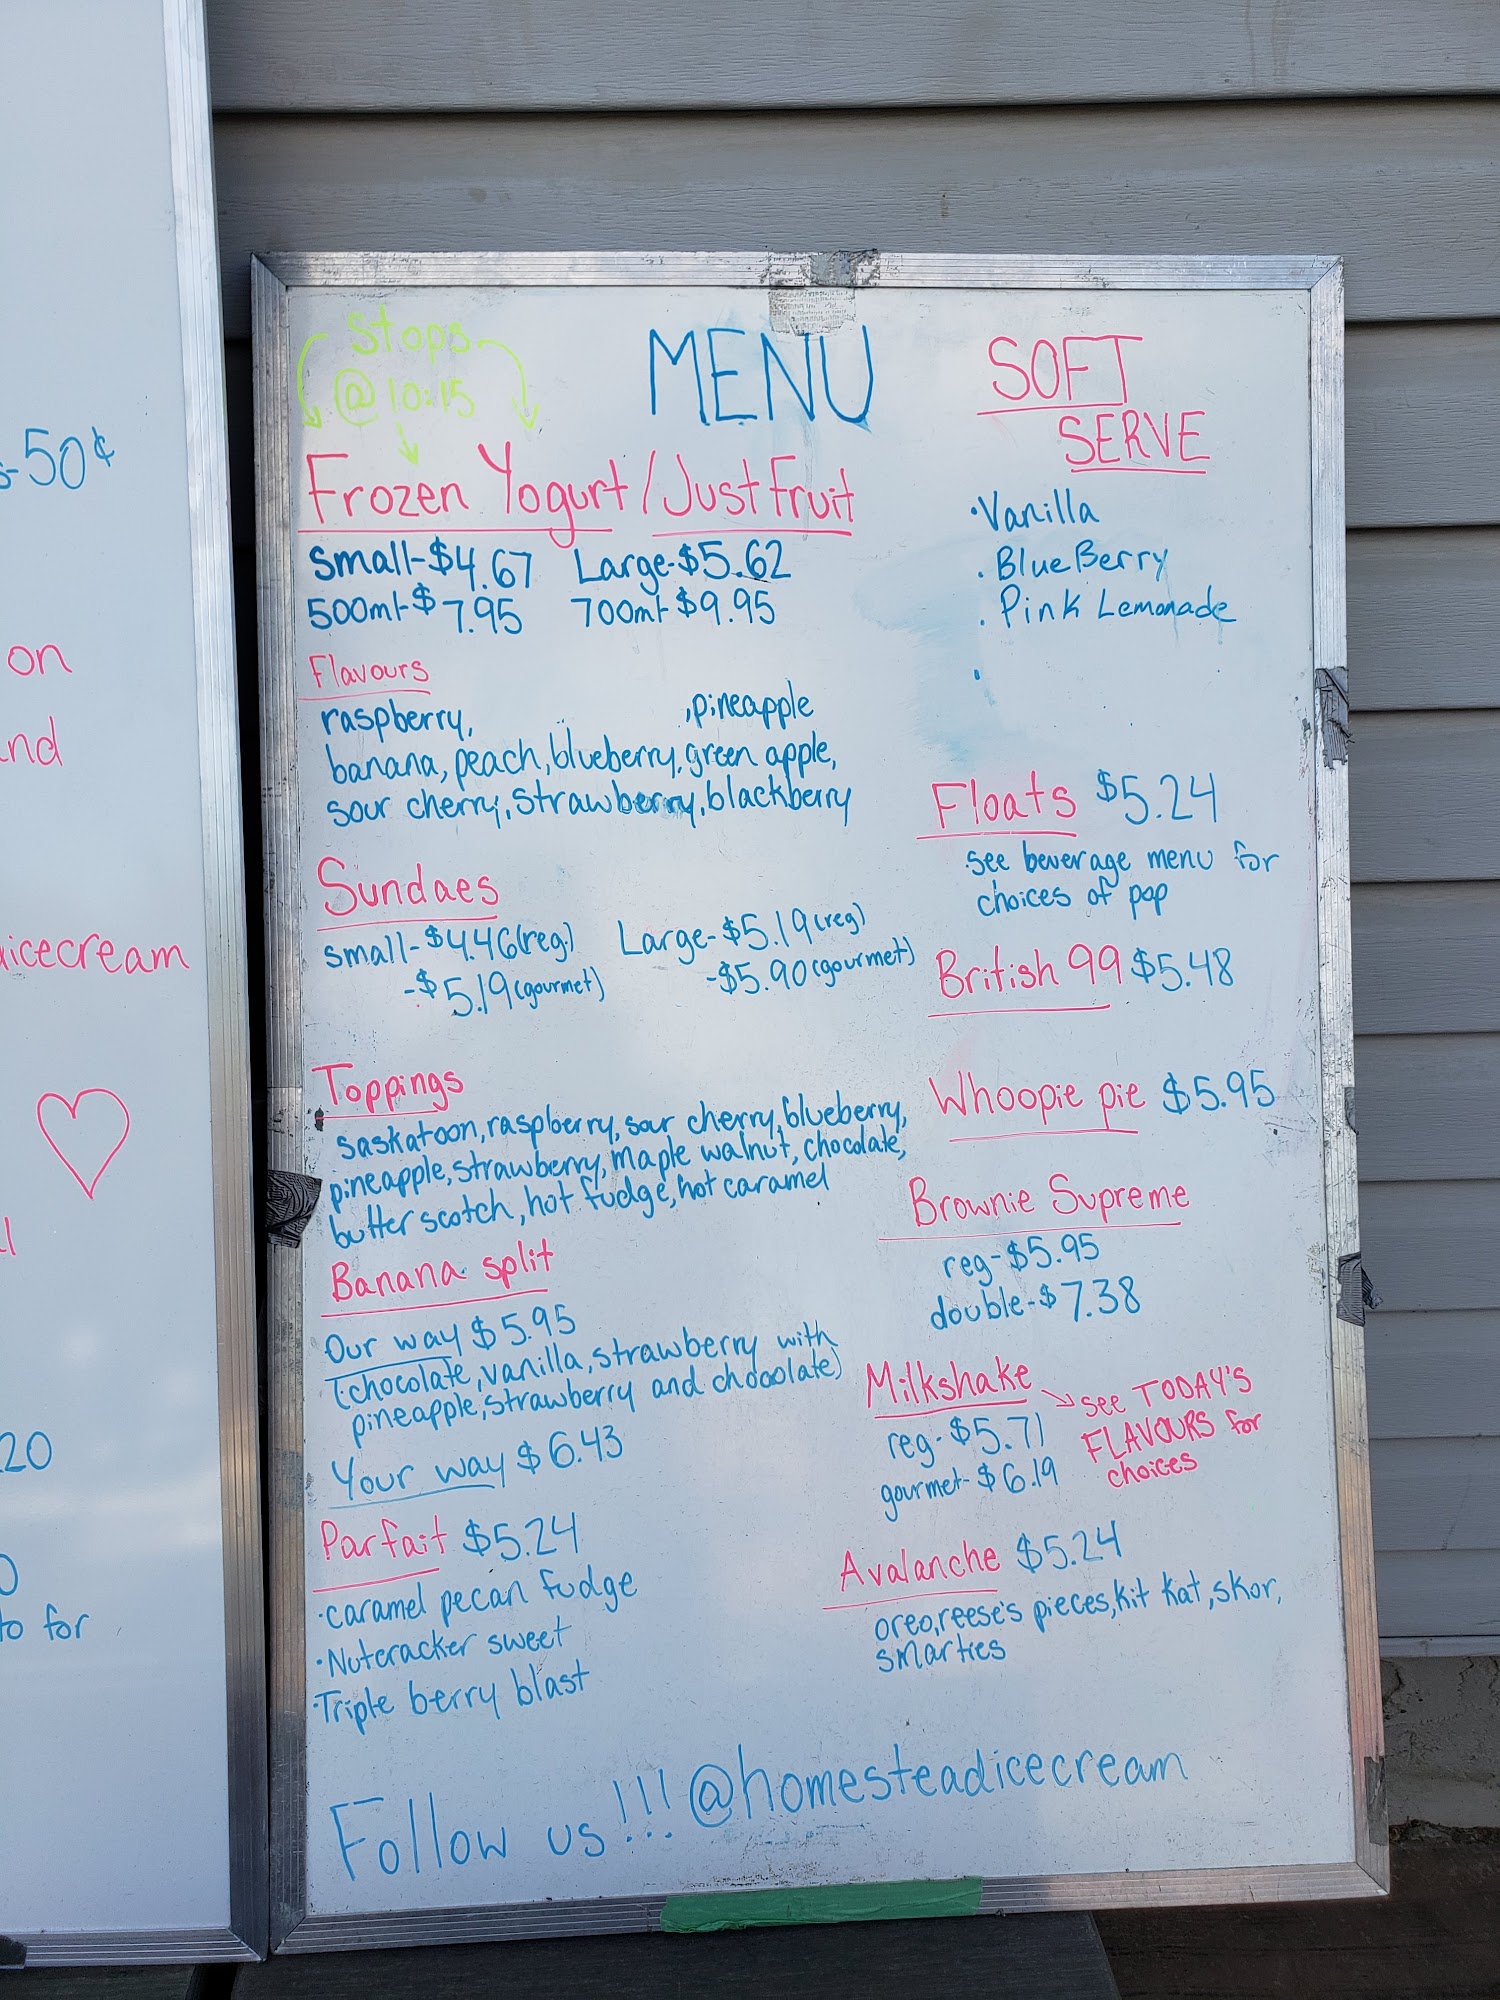 50¢
on
icecream
20
to for
Stops
@ 10:15
MENU
SOFT
SERVE
Frozen Yogurt/Just Fruit
small-$4.67 Large-$5.62
500ml-$7.95 700ml-$9.95
Flavours
raspberry, ,pineapple
banana, peach, blueberry, green apple,
sour cherry, strawberry, blackberry
Sundaes
small-$4.46(reg.) Large-$5.19(reg)
-$5.19(gourmet) -$5.90(gourmet)
Toppings
saskatoon, raspberry, sour cherry, blueberry,
pineapple, strawberry, maple walnut, chocolate,
butterscotch, hot fudge, hot caramel
Banana split
Our way $5.95
(chocolate, vanilla, strawberry with
pineapple, strawberry and chocolate)
Your way $6.43
Parfait $5.24
·caramel pecan fudge
·Nutcracker sweet
·Triple berry blast
·Vanilla
·BlueBerry
·Pink Lemonade
·
Floats $5.24
see beverage menu for
choices of pop
British 99 $5.48
Whoopie pie $5.95
Brownie Supreme
reg-$5.95
double-$7.38
Milkshake → see TODAY'S
FLAVOURS for
choices
reg-$5.71
gourmet-$6.19
Avalanche $5.24
oreo, reese's pieces, kit kat, skor,
smarties
Follow us!!! @homesteadicecream